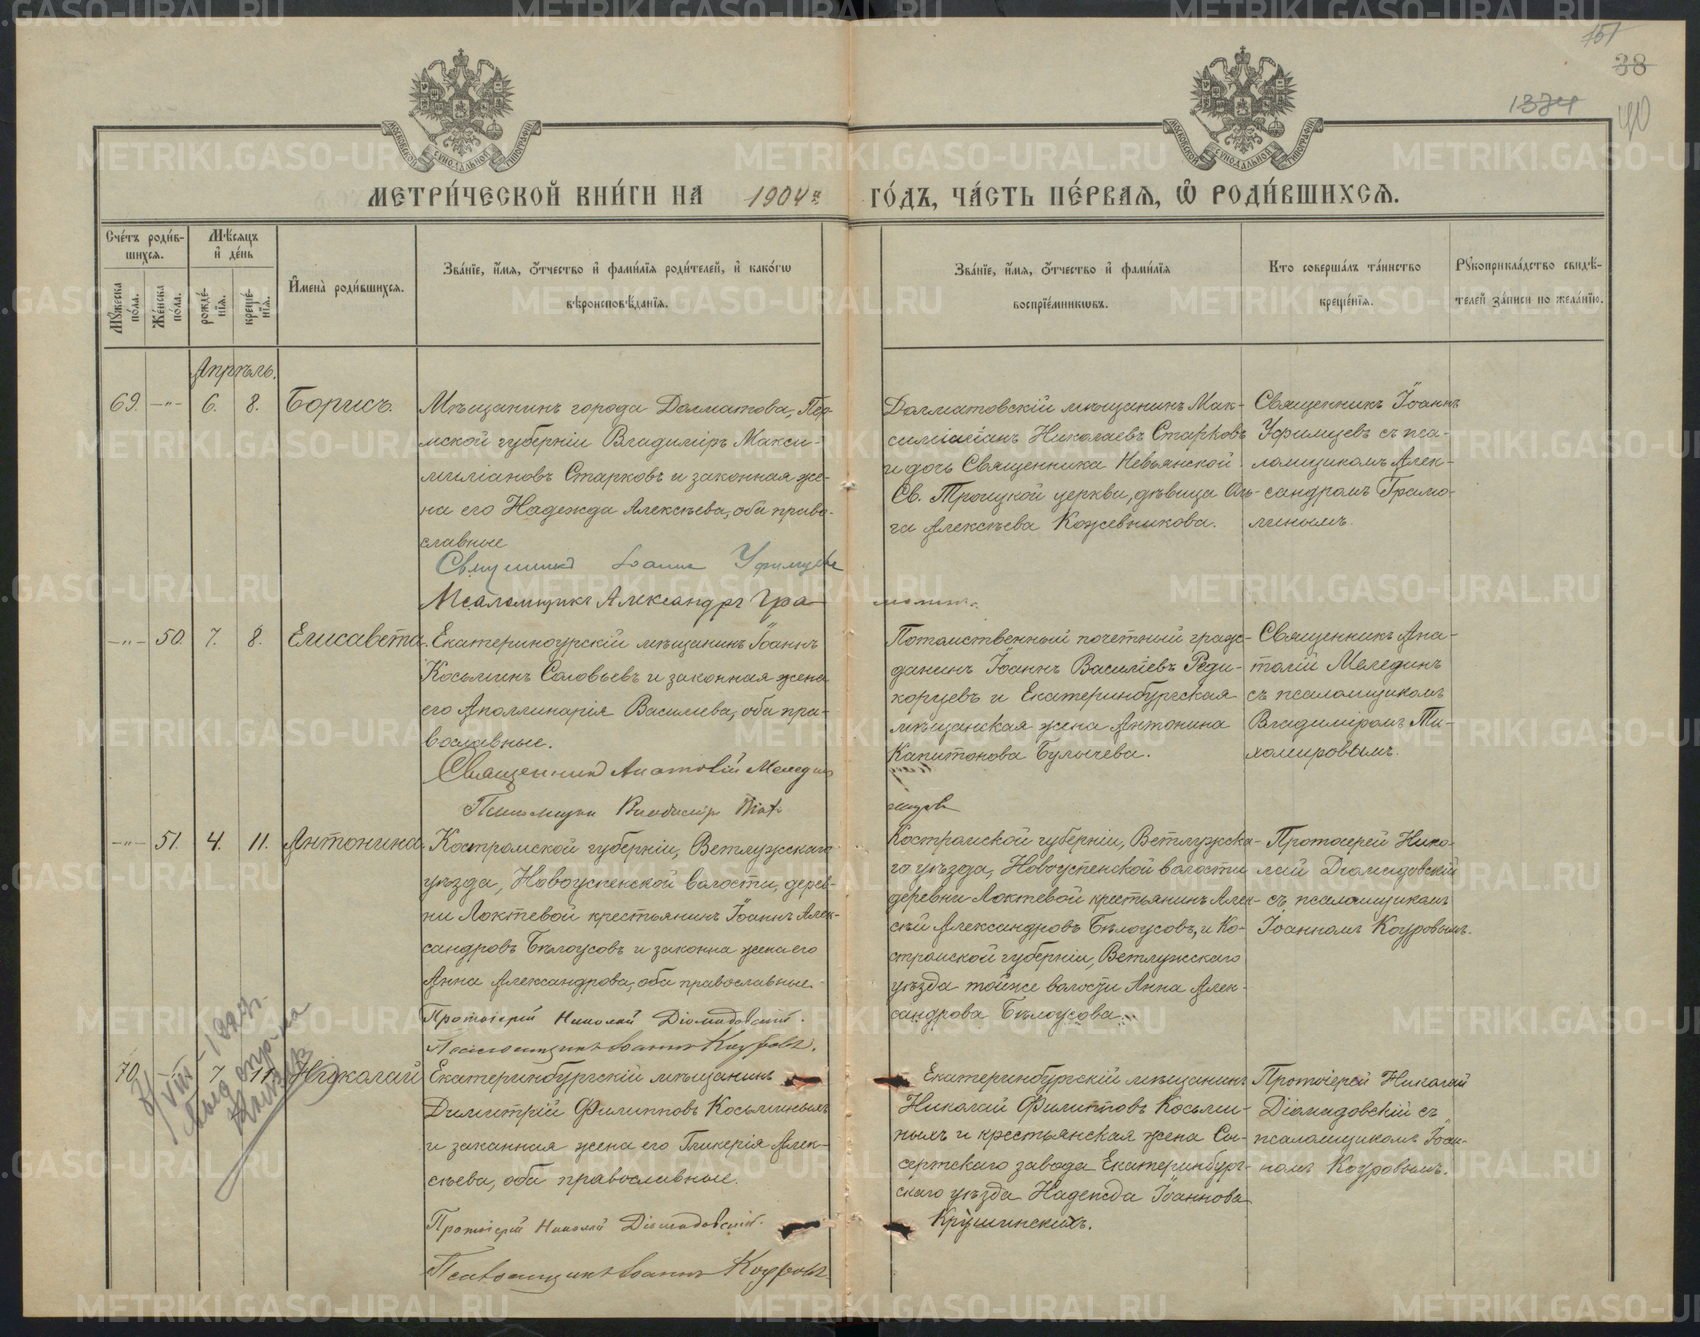 151
38
1374
40
МОСКОВСКОЙ СѴНОДАЛЬНОЙ ТИПОГРАФІИ
МОСКОВСКОЙ СѴНОДАЛЬНОЙ ТИПОГРАФІИ
МЕТРИ́ЧЕСКОЙ КНИ́ГИ НА 1904 ГО́ДЪ, ЧА́СТЬ ПЕ́РВАЯ, Ѡ РОДИ́ВШИХСЯ.
Сче́тъ роди́в-
шихся.
Мꙋ́жеска по́ла.
Же́нска по́ла.
Мѣ́сяцъ и҆ де́нь
рожде́нїя.
креще́нїя.
И҆мена̀ роди́вшихся.
Зва́нїе, и҆́мя, ѻ҆́тчество и҆ фами́лїѧ роди́телей, и҆ како́гѡ
вѣроисповѣ́данїѧ.
Зва́нїе, и҆́мя, ѻ҆́тчество и҆ фами́лїѧ
воспрїе́мникѡвъ.
Кто соверша́лъ та́инство
креще́нїѧ.
Рꙋкоприкла́дство свидѣ́-
телей за́писи по жела́нїю.
Апрѣль.
69. -"- 6. 8. Борисъ.
Мѣщанинъ города Далматова, Пер-
мской губерніи Владиміръ Макси-
миліановъ Старковъ и законная же-
на его Надежда Алексѣева, оба право-
славные
Священникъ Іоаннъ Уфимцевъ
Псаломщикъ Александръ Гра-
молинъ.
Далматовскій мѣщанинъ Мак-
симиліанъ Николаевъ Старковъ
и дочь Священника Невьянской
Св. Троицкой церкви, дѣвица Оль-
га Алексѣева Кожевникова.
Священникъ Іоаннъ
Уфимцевъ съ пса-
ломщикомъ Алек-
сандромъ Грамо-
линымъ.
-"- 50. 7. 8. Елисавета.
Екатеринбургскій мѣщанинъ Іоаннъ
Косьминъ Соловьевъ и законная жена
его Аполлинарія Василиева, оба пра-
вославные.
Священникъ Анатолій Мелединъ
Псаломщикъ Владиміръ Тихо-
Потомственный почетный граж-
данинъ Іоаннъ Василіевъ Реди-
корцевъ и Екатеринбургская
мѣщанская жена Антонина
Капитонова Булычева.
Священникъ Ана-
толій Мелединъ
съ псаломщикомъ
Владиміромъ Ти-
хомировымъ.
-"- 51. 4. 11. Антонина.
Костромской губерніи, Ветлужскаго
уѣзда, Новоуспенской волости, дерев-
ни Локтевой крестьянинъ Іоаннъ Алек-
сандровъ Бѣлоусовъ и законна жена его
Анна Александрова, оба православные.
Протоіерей Николай Діомидовскій.
Псаломщикъ Іоаннъ Коуровъ.
Костромской губерніи, Ветлужска-
го уѣзда, Новоуспенской волости
деревни Локтевой крестьянинъ Алек-
сѣй Александровъ Бѣлоусовъ, и Ко-
стромской губерніи, Ветлужскаго
уѣзда тойже волости Анна Алек-
сандрова Бѣлоусова.
Протоіерей Нико-
лай Діомидовскій
съ псаломщикомъ
Іоанномъ Коуровымъ.
70. 7. 11. Николай
Екатеринбургскій мѣщанинъ
Димитрій Филипповъ Косьминыхъ
и законная жена его Гликерія Алек-
сѣева, оба православные.
Протоіерей Николай Діомидовскій.
Псаломщикъ Іоаннъ Коуровъ
Екатеринбургскій мѣщанинъ
Николай Филипповъ Косьми-
ныхъ и крестьянская жена Сы-
сертскаго завода Екатеринбург-
скаго уѣзда Надежда Іоаннова
Крушинскихъ.
Протоіерей Николай
Діомидовскій съ
псаломщикомъ Іоан-
номъ Коуровымъ.
METRIKI.GASO-URAL.RU